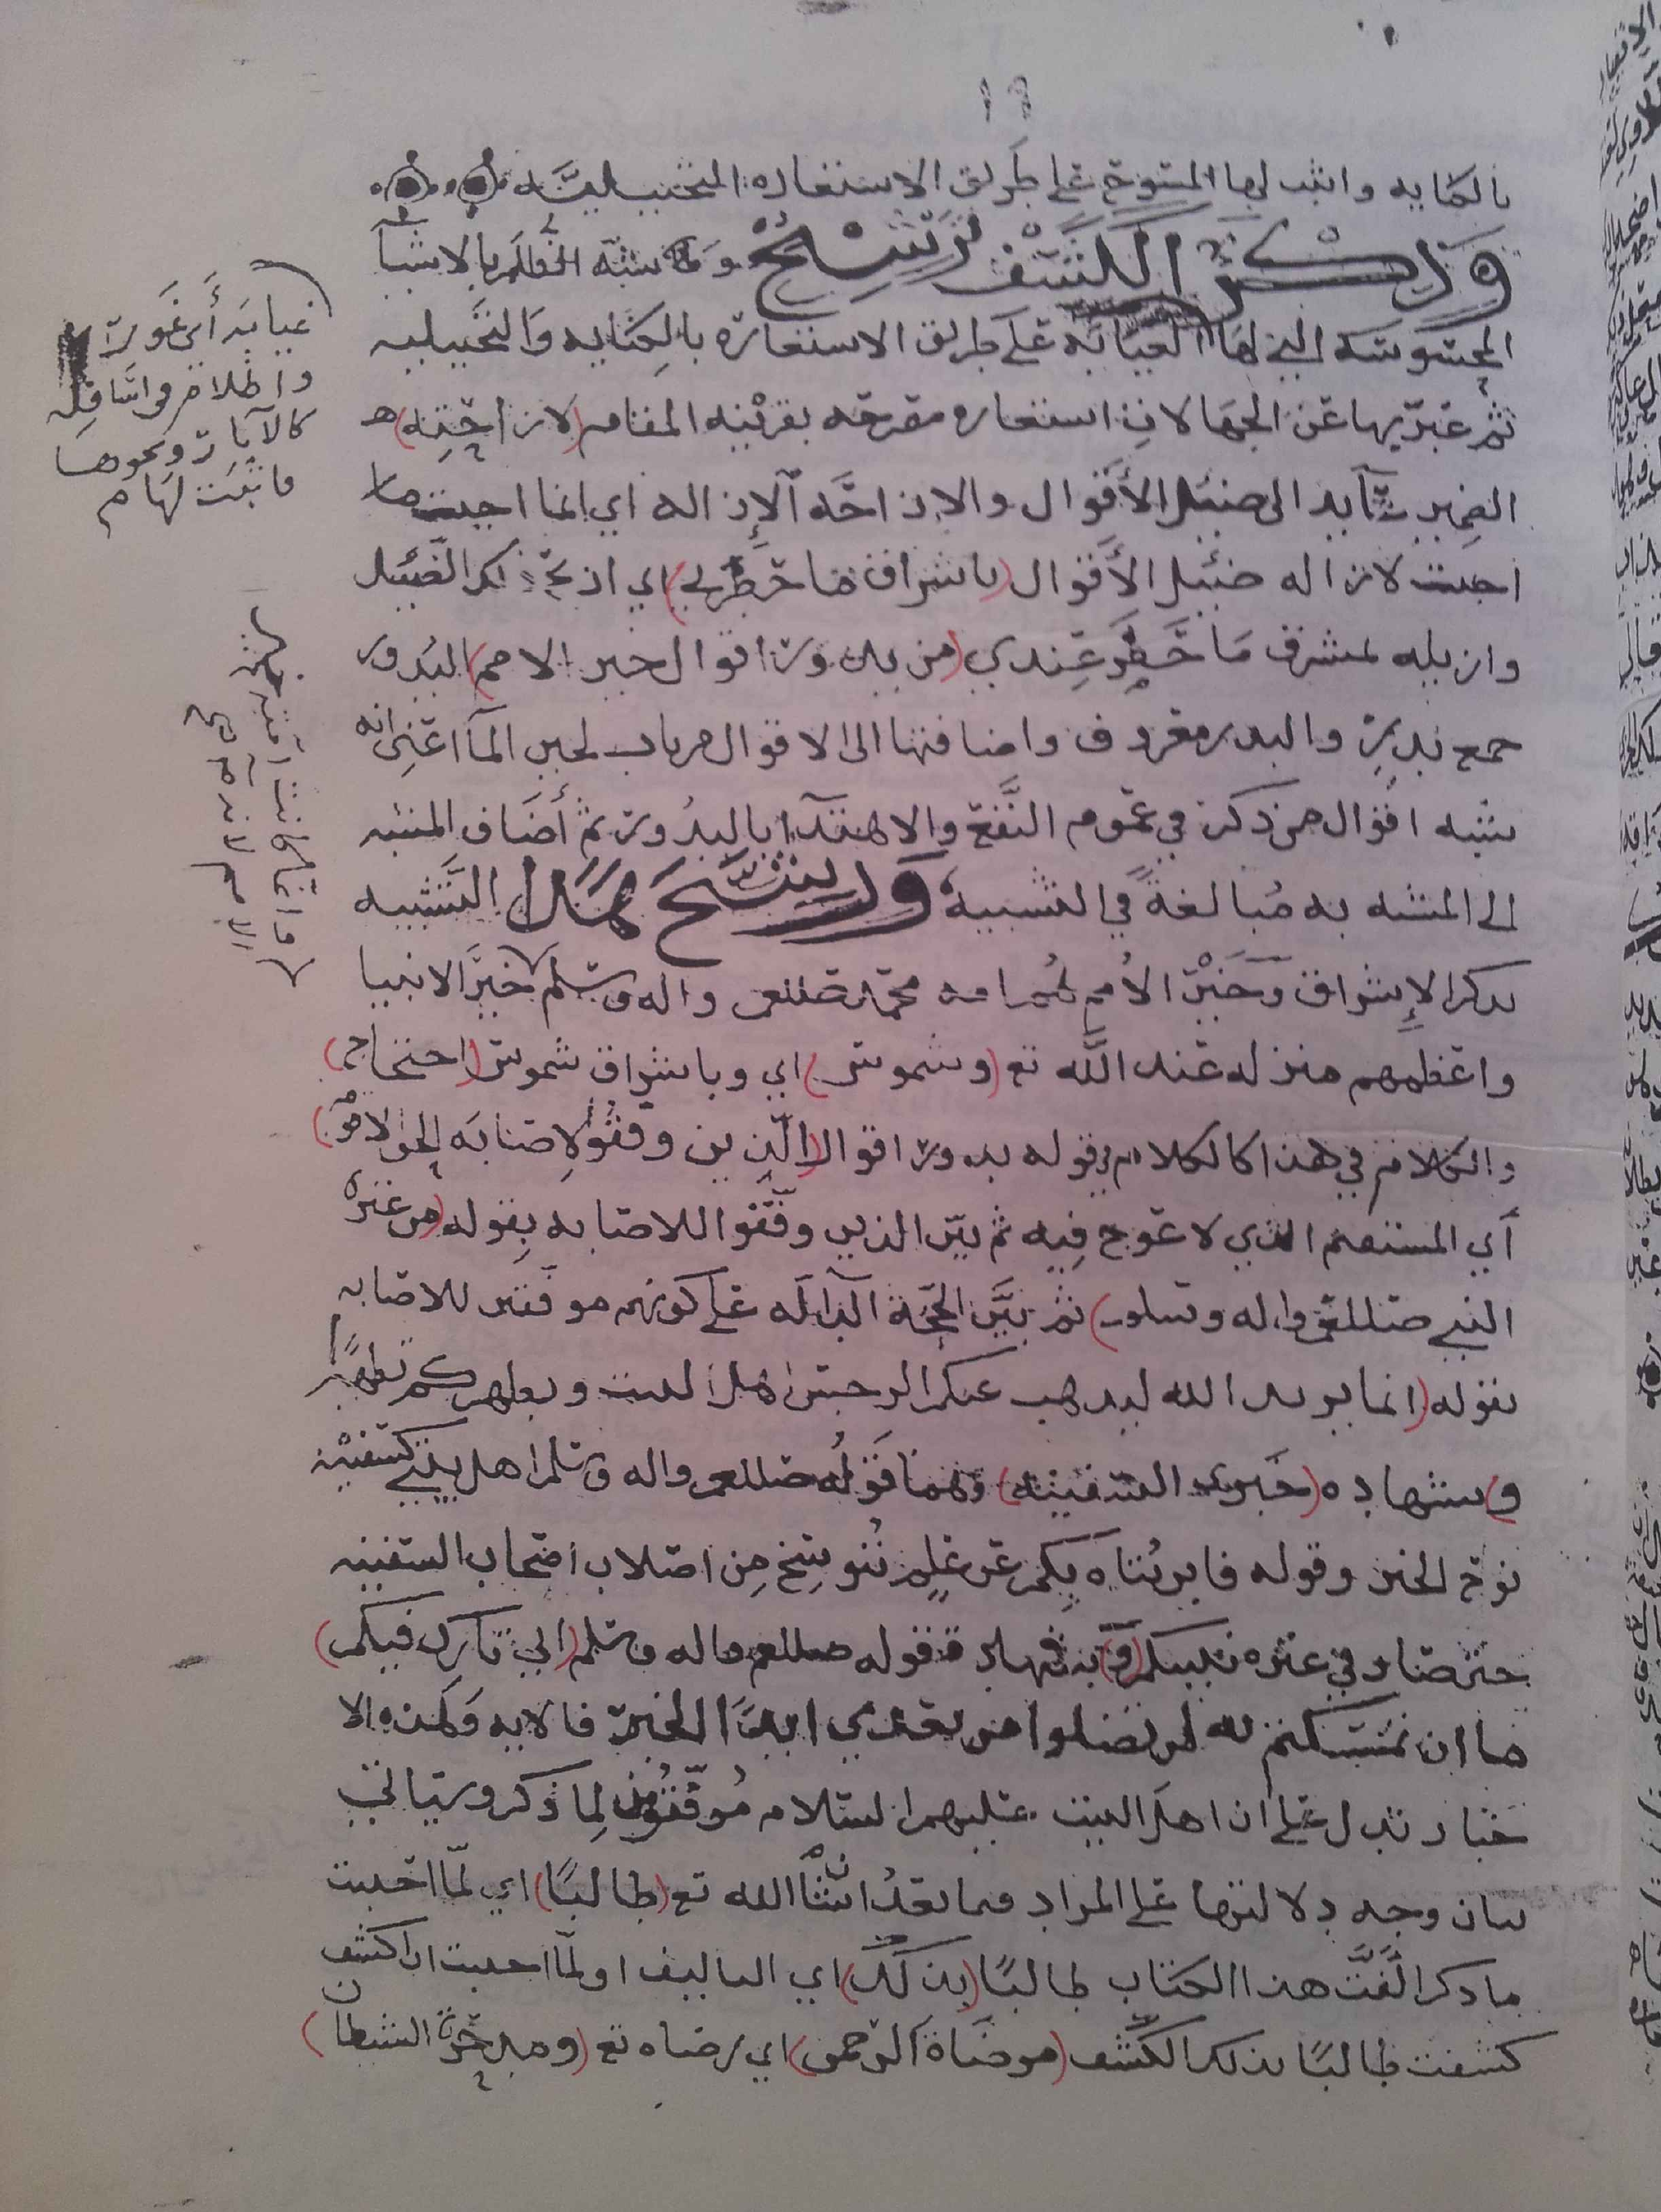 ١٩
بالكنايه واثبت لها المسوح على طريق الاستعاره التخييليه
وذكر الكشف ترشيح وكما شبه الظلم بالاشيا
المحسوسه التي لها الغيابه على طريق الاستعاره بالكنايه والتخييليه
ثم عبر بها عن الجهالات استعاره مصرحه بقرينه المقام (لازاحته)
الضمير عايد الى ضئيل الأقوال والازاحه الإزاله اي انما احببت ما
احببت لازاله ضئيل الأقوال (باشراق ما خطر لي) اي اذكر الضئيل
وازيله بمشرق ما خطر عندي (من بدور اقوال خير الامم) البدور
جمع بدر والبدر معروف واضافتها الى الاقوال من باب لجين الما اعني انه
شبه اقوال من ذكر في عموم النفع والاهتدا بالبدور ثم أضاف المشبه
الى المشبه به مبالغة في التشبيه ورشح هذا التشبيه
بذكر الإشراق وخير الأمم هم امة محمد صللعم واله وسلم خير الانبيا
واعظمهم منزله عند الله تع (وشموس) اي وباشراق شموس (احتجاج)
والكلام في هذا كالكلام في قوله بدور اقوال (الذين وفقوا لإصابه الحق لا من)
أي المستقيم الذي لا عوج فيه ثم بين الذين وفقوا للاصابه بقوله (من عتره
النبي صللعم واله وسلم) ثم بين الحجة الدالة على كونهم موفقين للاصابه
بقوله (انما يريد الله ليذهب عنكم الرجس اهل البيت ويطهركم تطهيرا
و) بشهاده (خبري السفينه) وهما قوله صللعم واله وسلم اهل بيتي كسفينه
نوح الخبر وقوله فاين يتاه بكم عن علم تنوسخ من اصلاب اصحاب السفينه
حتى صار في عتره نبيكم (و) بشهاده قوله صللعم واله وسلم (اني تارك فيكم)
ما ان تمسكتم به لن تضلوا من بعدي ابدا الخبر فالايه وهذه الا
خبار تدل على ان اهل البيت عليهم السلام موفقون لما ذكر وسياتي
بيان وجه دلالتها على المراد فيما بعد انشا الله تع (طالبًا) اي لما احببت
ما ذكر الفت هذا الكتاب طالبًا (بذلك) اي التاليف او لما احببت ان اكشف
كشفت طالبًا بذلك الكشف (مرضاة الرحمن) اي رضاه تع (ومدحرة الشيطان)
غيابه أي غور
واظلام في اسافله
كالآبار ونحوها
فاثبت لها م